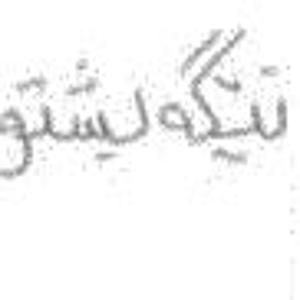 تێگەیشتو